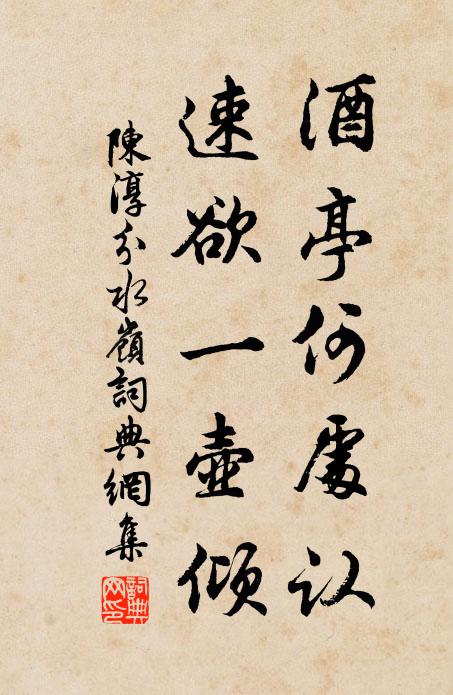 酒亭何處认
速欲一壺傾
陳淳分水嶺詞典網集
詞典网印